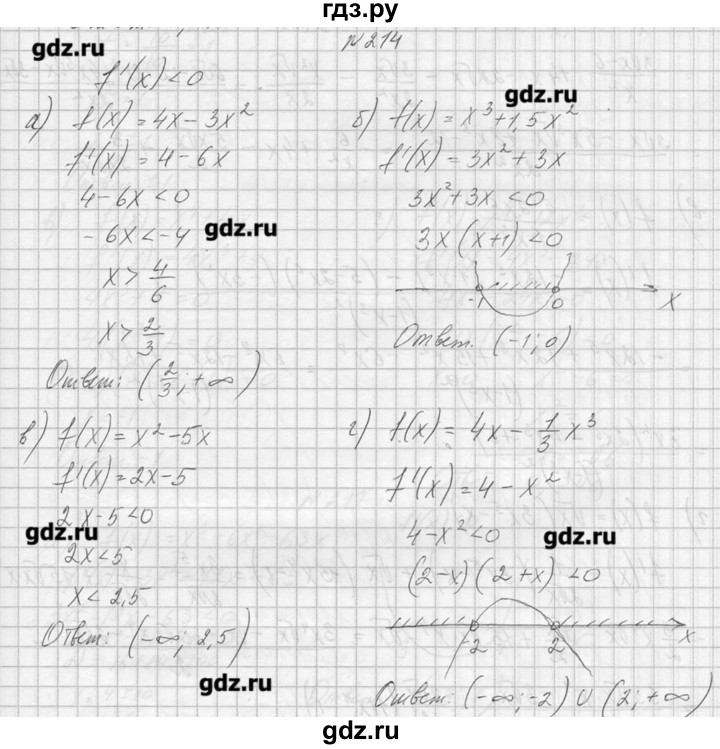 гдз.ру
gdz.ru
№214
f'(x) < 0
gdz.ru
а) f(x) = 4x - 3x²
f'(x) = 4 - 6x
4 - 6x < 0
- 6x < -4
gdz.ru
x > 4/6
x > 2/3
Ответ: (2/3; +∞)
б) f(x) = x³ + 1,5x²
f'(x) = 3x² + 3x
3x² + 3x < 0
3x(x+1) < 0
-1 0 x
Ответ. (-1; 0)
в) f(x) = x² - 5x
f'(x) = 2x - 5
2x - 5 < 0
gdz.ru
2x < 5
x < 2,5
Ответ: (-∞; 2,5)
gdz.ru
г) f(x) = 4x - 1/3 x³
f'(x) = 4 - x²
4 - x² < 0
gdz.ru
(2-x)(2+x) < 0
-2 2 x
Ответ: (-∞; -2) ∪ (2; +∞)
gdz.ru